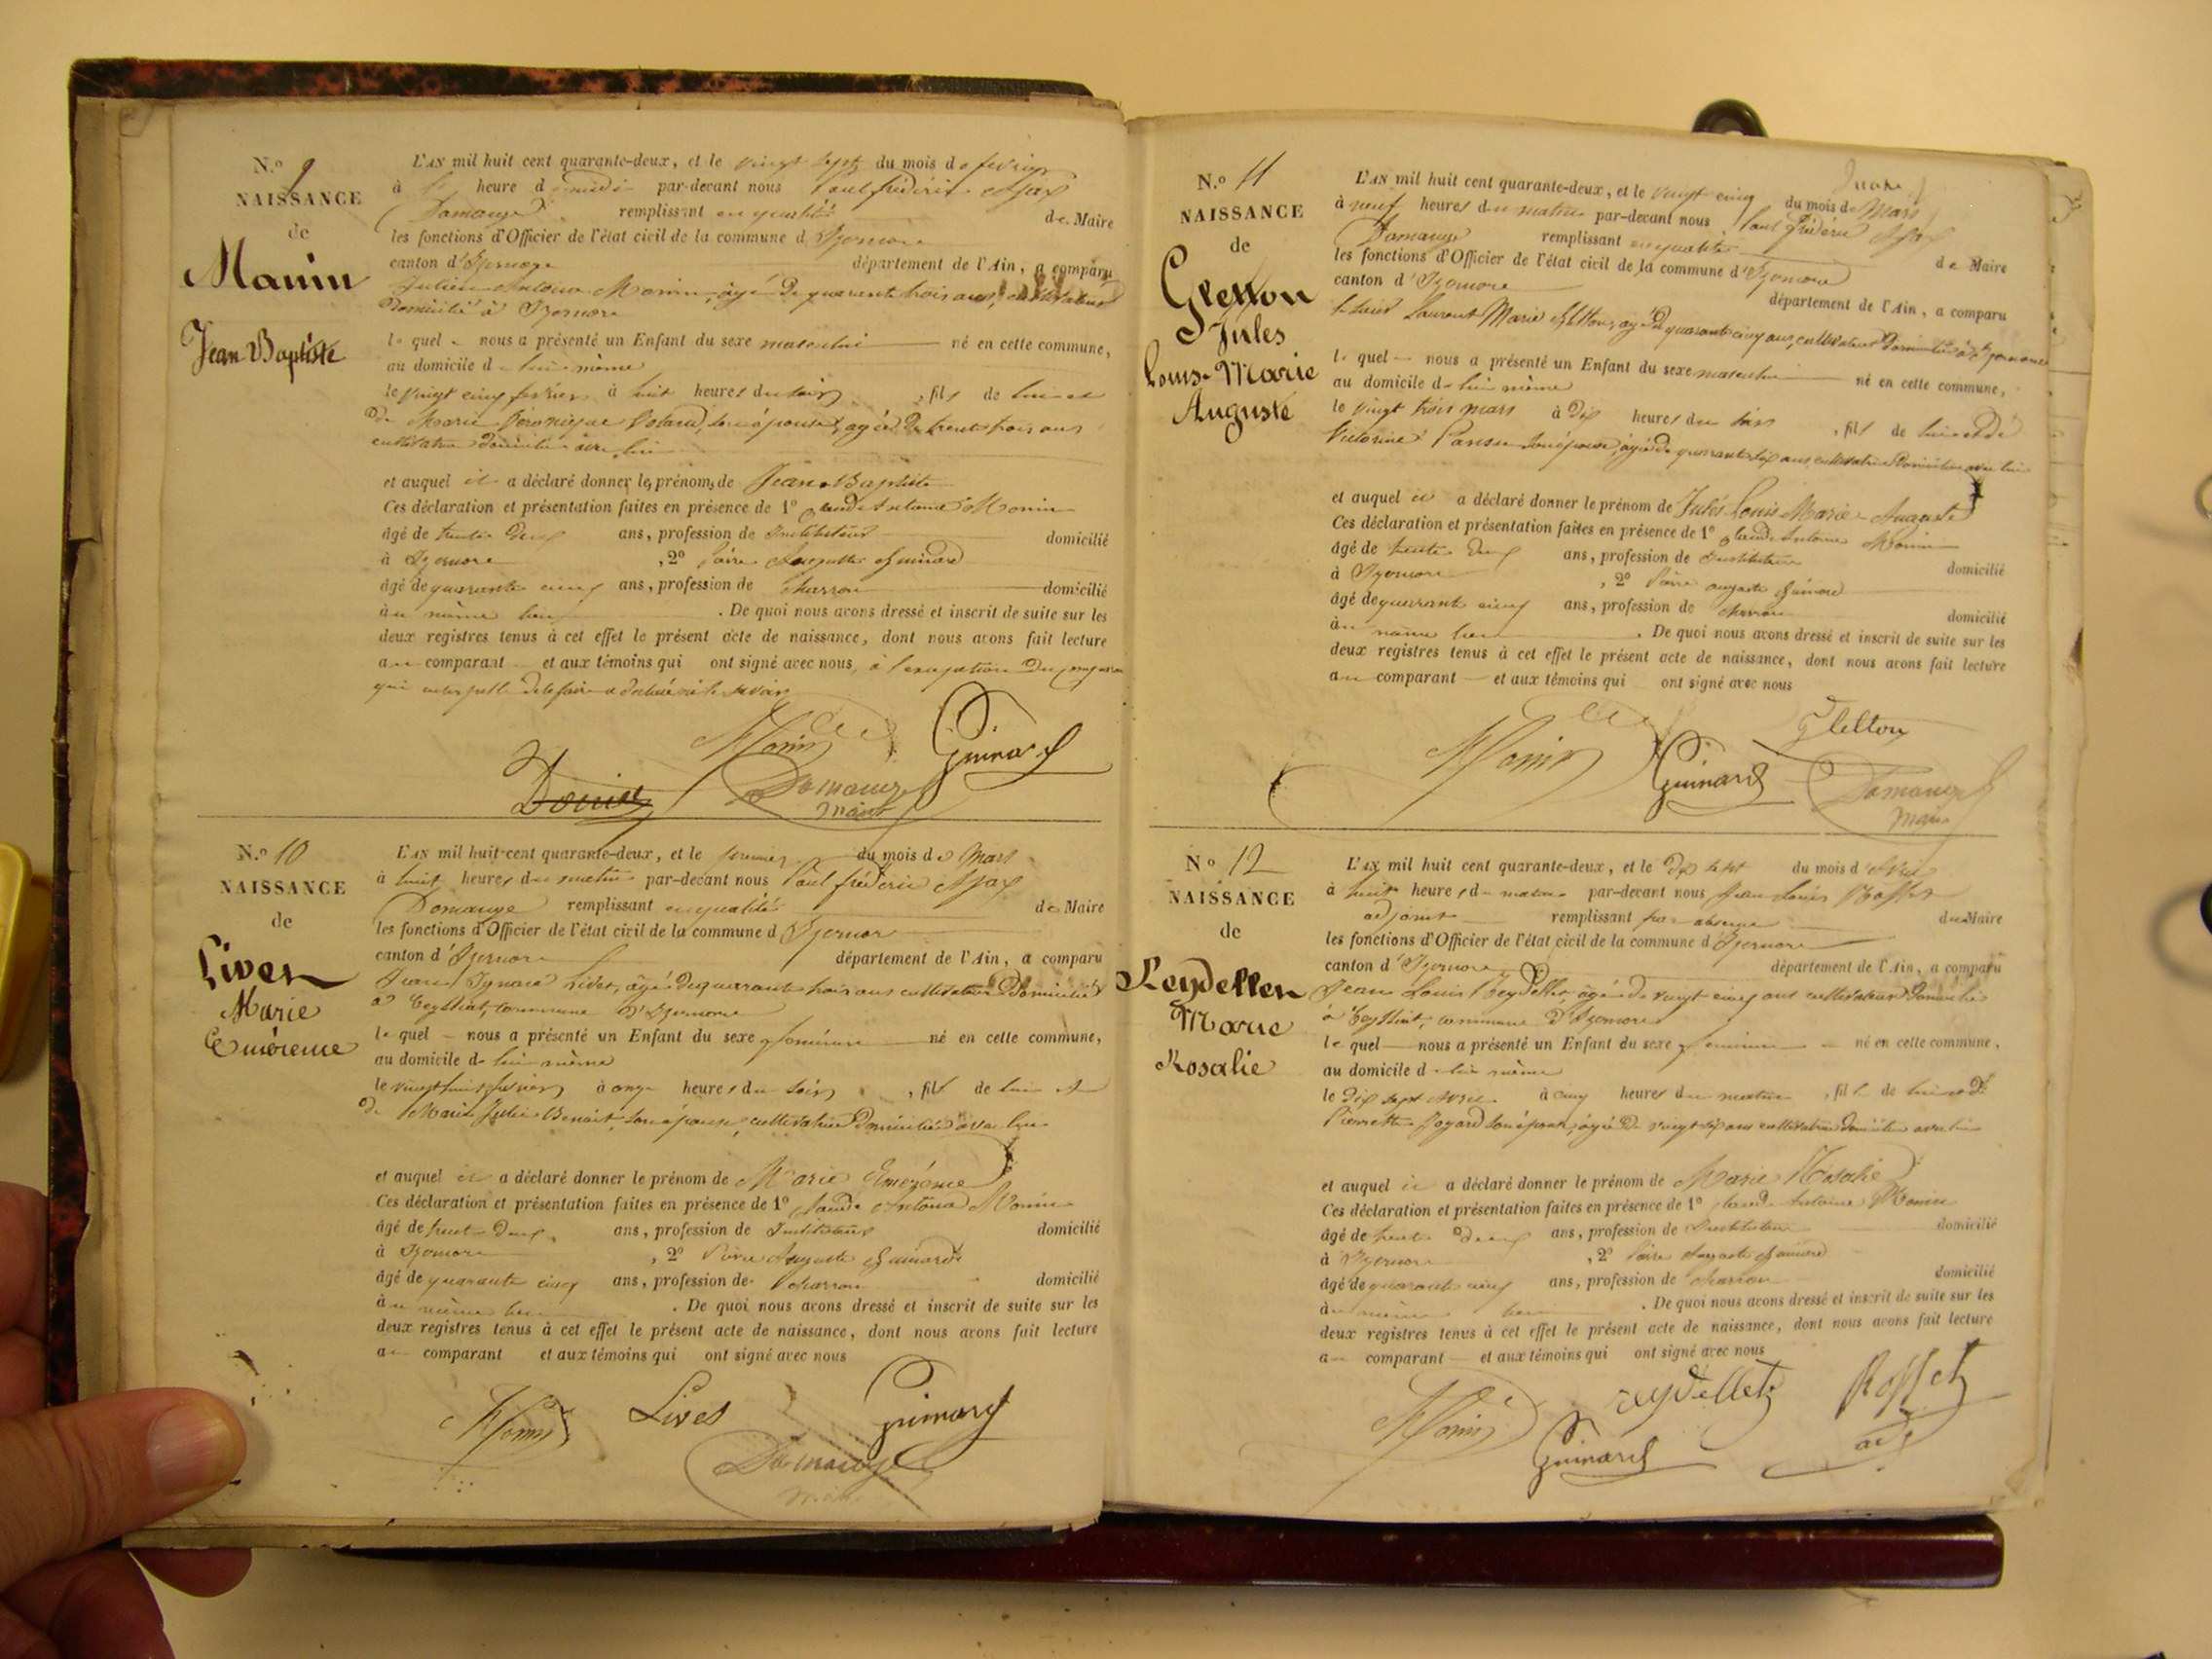 N.º 9
NAISSANCE
de
Manin
Jean Baptiste
L'AN mil huit cent quarante-deux, et le vingt sept du mois de fevrier
à heure de midi par-devant nous Paul frédéric Ajax
Domange remplissant en qualité de Maire
les fonctions d'Officier de l'état civil de la commune d'Izernore
canton d'Izernore département de l'Ain, a comparu
Julien Antoine Monin, âgé de quarante trois ans, cultivateur
Domicilié à Izernore
lequel nous a présenté un Enfant du sexe masculin né en cette commune,
au domicile de lui même
le vingt cinq fevrier à huit heures du soir, fils de lui et
de Marie Véronique son épouse, agée de trente trois ans
cultivatrice domiciliée avec lui
et auquel il a déclaré donner les prénoms de Jean Baptiste
Ces déclaration et présentation faites en présence de 1º Claude Antoine Monin
âgé de trente deux ans, profession de Instituteur domicilié
à Izernore, 2º Pierre Auguste Guinard
âgé de quarante cinq ans, profession de Charron domicilié
au même lieu. De quoi nous avons dressé et inscrit de suite sur les
deux registres tenus à cet effet le présent acte de naissance, dont nous avons fait lecture
au comparant et aux témoins qui ont signé avec nous, à l'exception du comparant
qui interpellé de le faire a déclaré ne le savoir
Monin Guinard
Domange
maire
N.º 10
NAISSANCE
de
Livet
Marie
Emérence
L'AN mil huit cent quarante-deux, et le premier du mois de Mars
à huit heures du matin par-devant nous Paul frédéric Ajax
Domange remplissant en qualité de Maire
les fonctions d'Officier de l'état civil de la commune d'Izernore
canton d'Izernore département de l'Ain, a comparu
Ignace Livet, âgé de quarante trois ans cultivateur Domicilié
à Ceyssiat, commune d'Izernore
lequel nous a présenté un Enfant du sexe féminin né en cette commune,
au domicile de lui même
le vingt huit fevrier à onze heures du soir, fils de lui et
de Marie Julie Benoit, son épouse, cultivatrice Domiciliée avec lui
et auquel il a déclaré donner le prénom de Marie Emérence
Ces déclaration et présentation faites en présence de 1º Claude Antoine Monin
âgé de trente deux ans, profession de Instituteur domicilié
à Izernore, 2º Pierre Auguste Guinard
âgé de quarante cinq ans, profession de charron domicilié
au même lieu. De quoi nous avons dressé et inscrit de suite sur les
deux registres tenus à cet effet le présent acte de naissance, dont nous avons fait lecture
au comparant et aux témoins qui ont signé avec nous
Monin Livet Guinard
Domange
N.º 11
NAISSANCE
de
Gletton
Jules
Louis Marie
Auguste
L'AN mil huit cent quarante-deux, et le vingt cinq du mois de Mars
à neuf heures du matin par-devant nous Paul Frédéric Ajax
Domange remplissant en qualité de Maire
les fonctions d'Officier de l'état civil de la commune d'Izernore
canton d'Izernore département de l'Ain, a comparu
le sieur Laurent Marie Gletton, agé de quarante cinq ans, cultivateur Domicilié à Izernore
lequel nous a présenté un Enfant du sexe masculin né en cette commune,
au domicile de lui même
le vingt trois mars à dix heures du soir, fils de lui et de
Victorine son épouse, agée de quarante six ans, cultivatrice Domiciliée avec lui
et auquel il a déclaré donner le prénom de Jules Louis Marie Auguste
Ces déclaration et présentation faites en présence de 1º Claude Antoine Monin
âgé de trente deux ans, profession de Instituteur domicilié
à Izernore, 2º Pierre auguste Guinard
âgé de quarante cinq ans, profession de charron domicilié
au même lieu. De quoi nous avons dressé et inscrit de suite sur les
deux registres tenus à cet effet le présent acte de naissance, dont nous avons fait lecture
au comparant et aux témoins qui ont signé avec nous
Gletton
Monin Guinard Domange
Maire
Nº 12
NAISSANCE
de
Reydellet
Marie
Rosalie
L'AN mil huit cent quarante-deux, et le Dix sept du mois d'Avril
à huit heures du matin par-devant nous Jean Louis Rosset
adjoint remplissant par absence du Maire
les fonctions d'Officier de l'état civil de la commune d'Izernore
canton d'Izernore département de l'Ain, a comparu
Jean Louis Reydellet, âgé de vingt cinq ans cultivateur Domicilié
à Ceyssiat, commune d'Izernore
lequel nous a présenté un Enfant du sexe féminin né en cette commune,
au domicile de lui même
le dix sept avril à cinq heures du matin, fils de lui et de
Pierrette son épouse, agée de vingt six ans cultivatrice domiciliée avec lui
et auquel il a déclaré donner le prénom de Marie Rosalie
Ces déclaration et présentation faites en présence de 1º Claude Antoine Monin
âgé de trente deux ans, profession de Instituteur domicilié
à Izernore, 2º Pierre Auguste Guinard
âgé de quarante cinq ans, profession de charron domicilié
au même lieu. De quoi nous avons dressé et inscrit de suite sur les
deux registres tenus à cet effet le présent acte de naissance, dont nous avons fait lecture
au comparant et aux témoins qui ont signé avec nous
Monin reydellet Rosset
Guinard adj